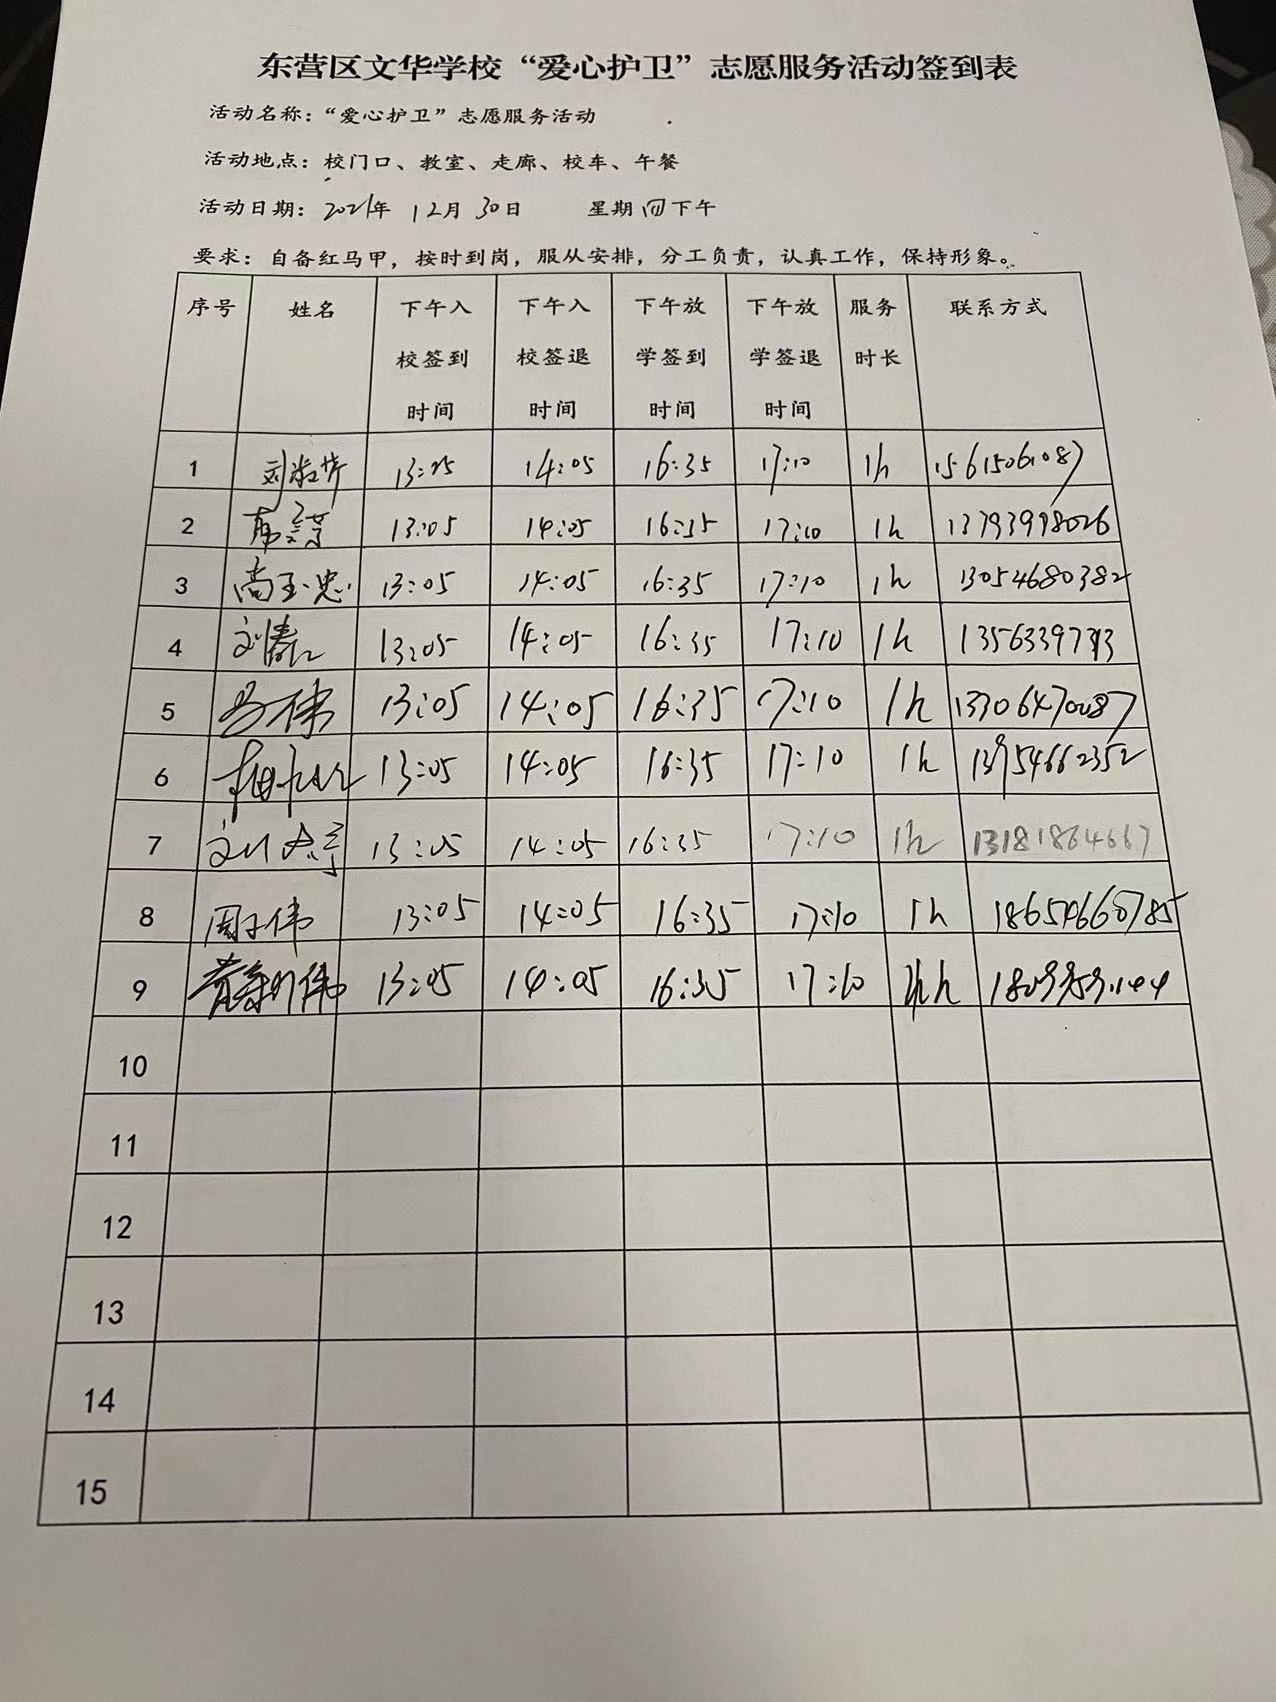 东营区文华学校“爱心护卫”志愿服务活动签到表
活动名称：“爱心护卫”志愿服务活动
活动地点：校门口、教室、走廊、校车、午餐
活动日期：2021年 12月 30日 星期四下午
要求：自备红马甲，按时到岗，服从安排，分工负责，认真工作，保持形象。
序号 姓名 下午入校签到时间 下午入校签退时间 下午放学签到时间 下午放学签退时间 服务时长 联系方式
1 13:05 14:05 16:35 17:10 1h 15615061087
2 13:05 14:05 16:35 17:10 1h 13793998026
3 尚玉忠 13:05 14:05 16:35 17:10 1h 13054680382
4 13:05 14:05 16:35 17:10 1h
5 13:05 14:05 16:35 17:10 1h 13306470087
6 13:05 14:05 16:35 17:10 1h 13954662352
7 13:05 14:05 16:35 17:10 1h 13181864667
8 周子伟 13:05 14:05 16:35 17:10 1h 18654660785
9 13:05 14:05 16:35 17:10
10
11
12
13
14
15